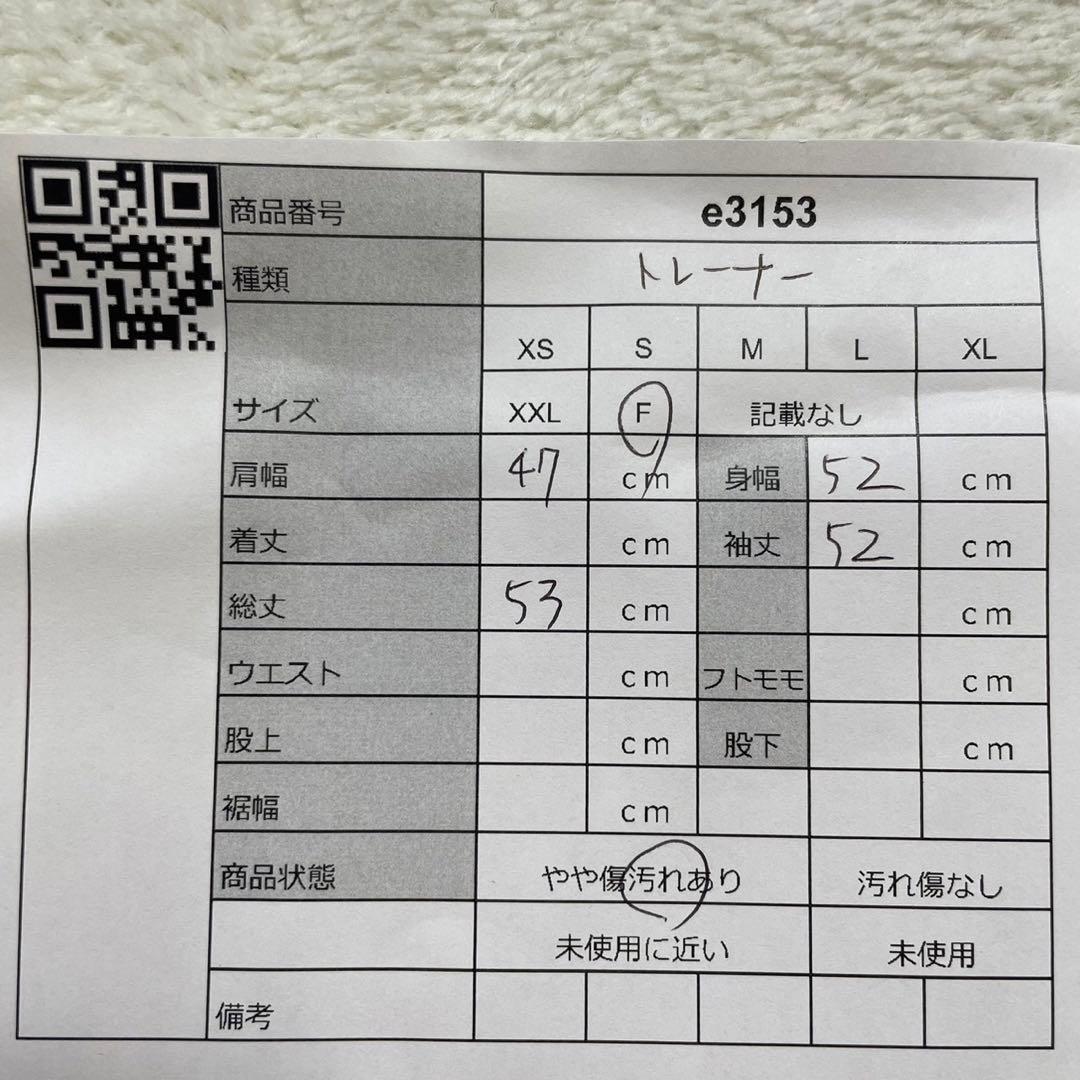 商品番号 e3153
種類 トレーナー
XS S M L XL
サイズ XXL F 記載なし
肩幅 47 cm 身幅 52 cm
着丈 cm 袖丈 52 cm
総丈 53 cm cm
ウエスト cm フトモモ cm
股上 cm 股下 cm
裾幅 cm
商品状態 やや傷汚れあり 汚れ傷なし
未使用に近い 未使用
備考